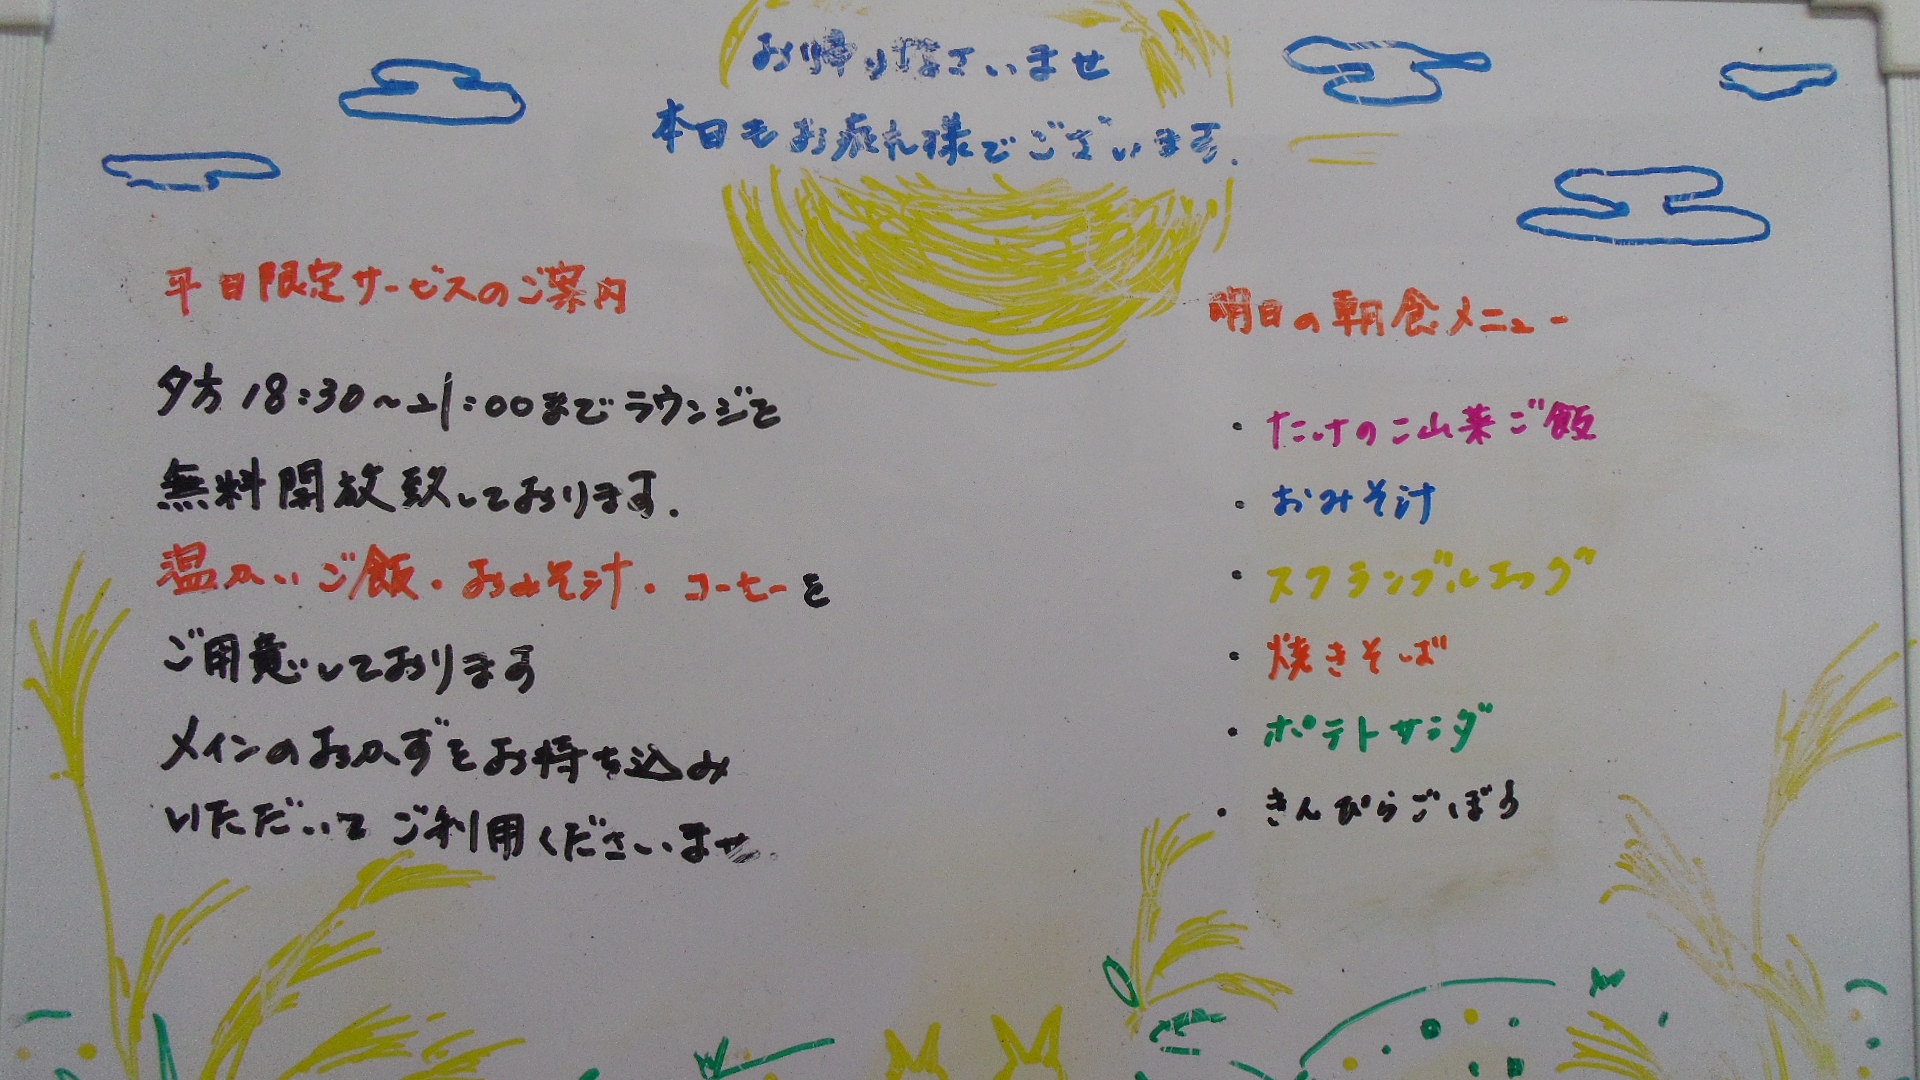 お帰りなさいませ
本日もお疲れ様でございます.
平日限定サービスのご案内
夕方18:30~21:00までラウンジを
無料開放致しております.
温かいご飯・おみそ汁・コーヒーを
ご用意しております
メインのおかずをお持ち込み
いただいてご利用くださいませ.
明日の朝食メニュー
・たけのこ山菜ご飯
・おみそ汁
・スクランブルエッグ
・焼きそば
・ポテトサラダ
・きんぴらごぼう